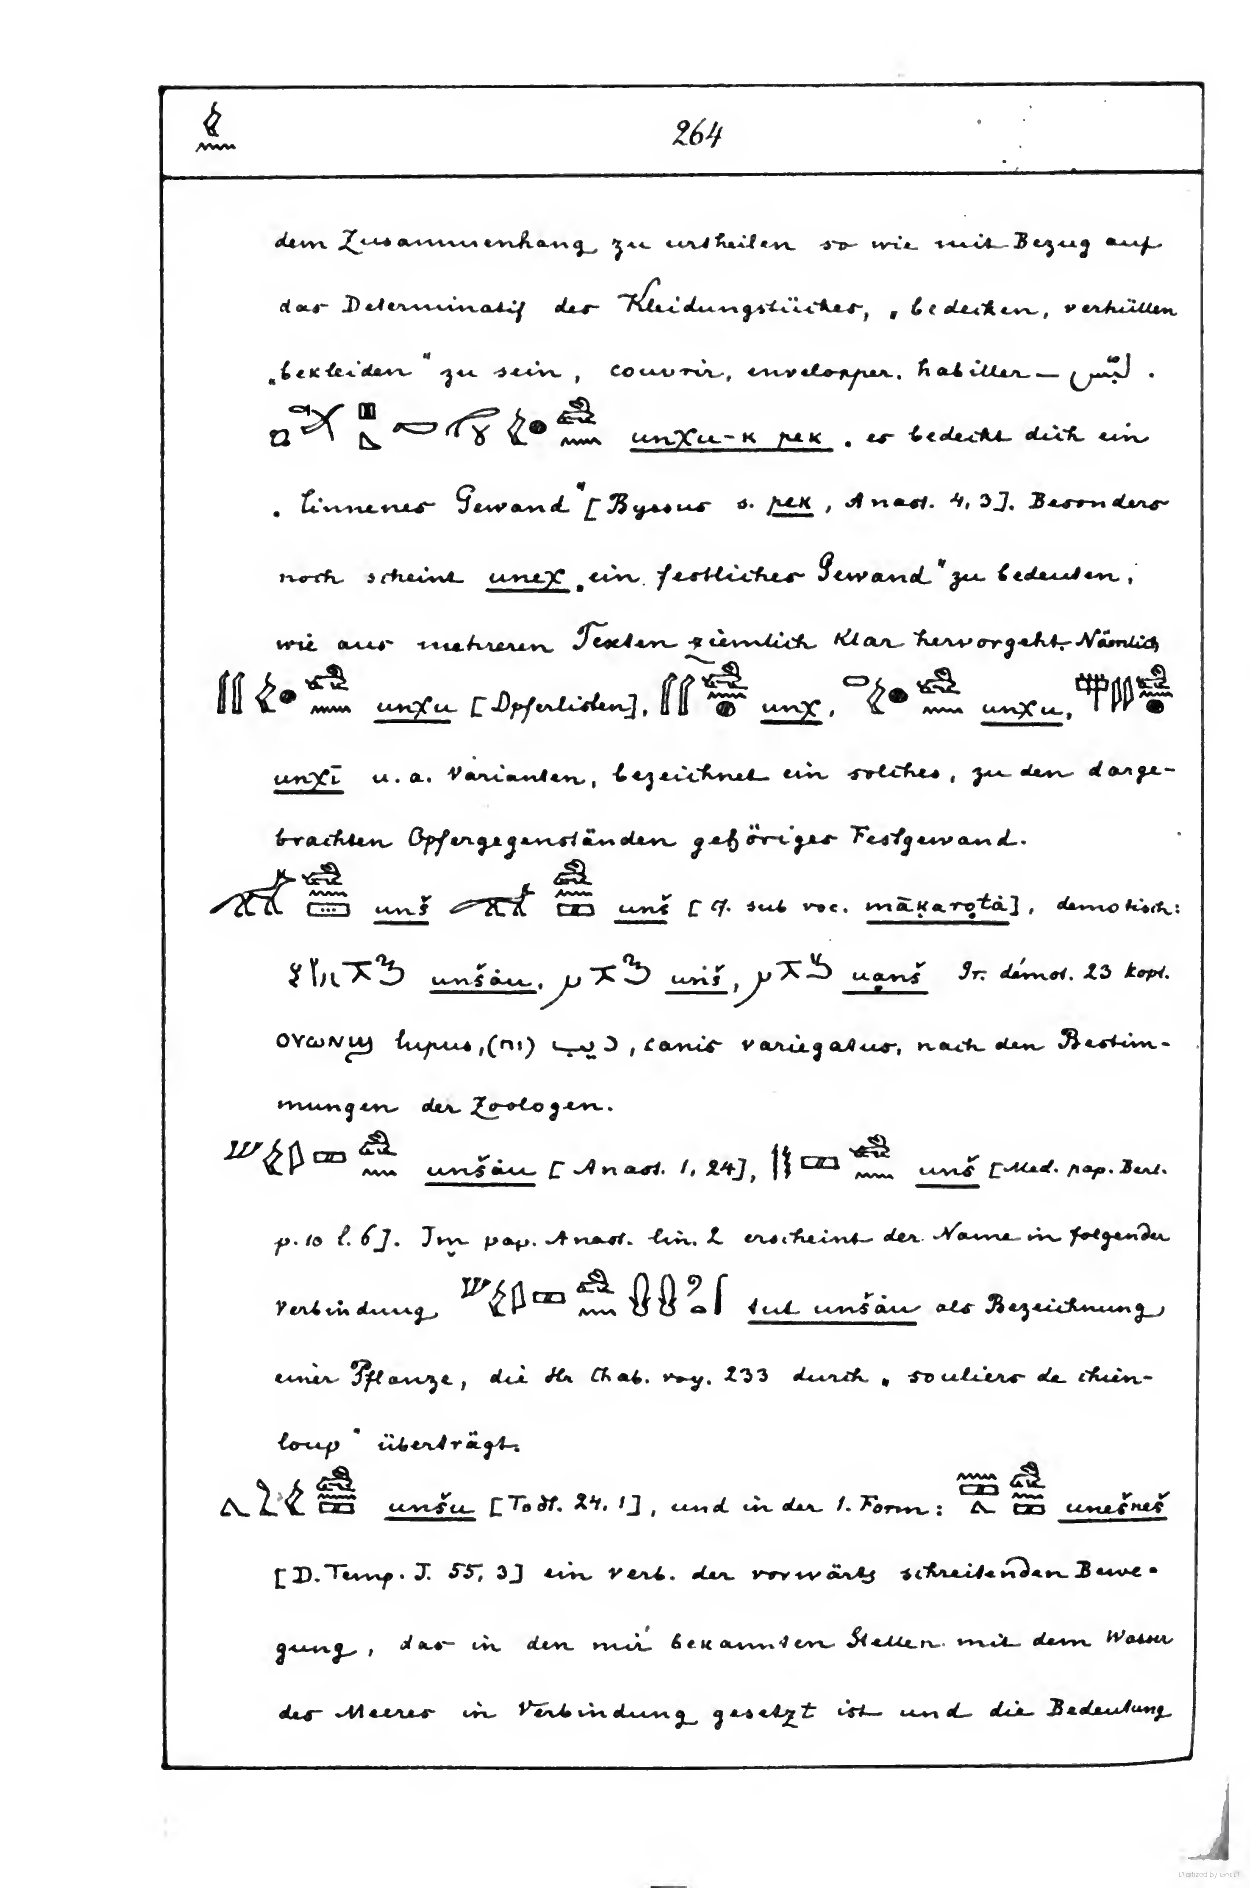 264
dem Zusammenhang zu urtheilen so wie mit Bezug auf
das Determinatif des Kleidungstückes, „bedecken, verhüllen
„bekleiden“ zu sein, couvrir, envelopper, habiller — لبّس.
unχu-k pek „es bedeckt dich ein
„linnenes Gewand“ [Byssus s. pek, Anast. 4, 3]. Besonders
noch scheint uneχ „ein festliches Gewand“ zu bedeuten,
wie aus mehreren Texten ziemlich klar hervorgeht. Nämlich
unχu [Opferlisten], unχ, unχu,
unχī u. a. Varianten, bezeichnet ein solches, zu den darge-
brachten Opfergegenständen gehöriges Festgewand.
unš unš [cf. sub voc. māḳarotȧ], demotisch:
unšȧu, unš, uanš Gr. démot. 23 kopt.
ⲟⲩⲱⲛϣ lupus, (ⲡⲓ) ذيب, canis variegatus, nach den Bestim-
mungen der Zoologen.
unšȧu [Anast. 1, 24], unš [Med. pap. Berl.
p. 10 l. 6]. Im pap. Anast. lin. 2 erscheint der Name in folgender
Verbindung tut unšȧu als Bezeichnung
einer Pflanze, die Hr Chab. voy. 233 durch „souliers de chien-
loup“ überträgt.
unšu [Todt. 24, 1], und in der 1. Form: unešneš
[D. Temp. I. 55, 3] ein verb. der vorwärts schreitenden Bewe-
gung, das in den mir bekannten Stellen mit dem Wasser
des Meeres in Verbindung gesetzt ist und die Bedeutung
Digitized by Google